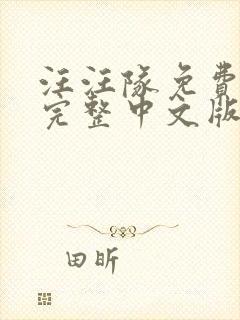 汪汪隊免費
完整中文版
田昕